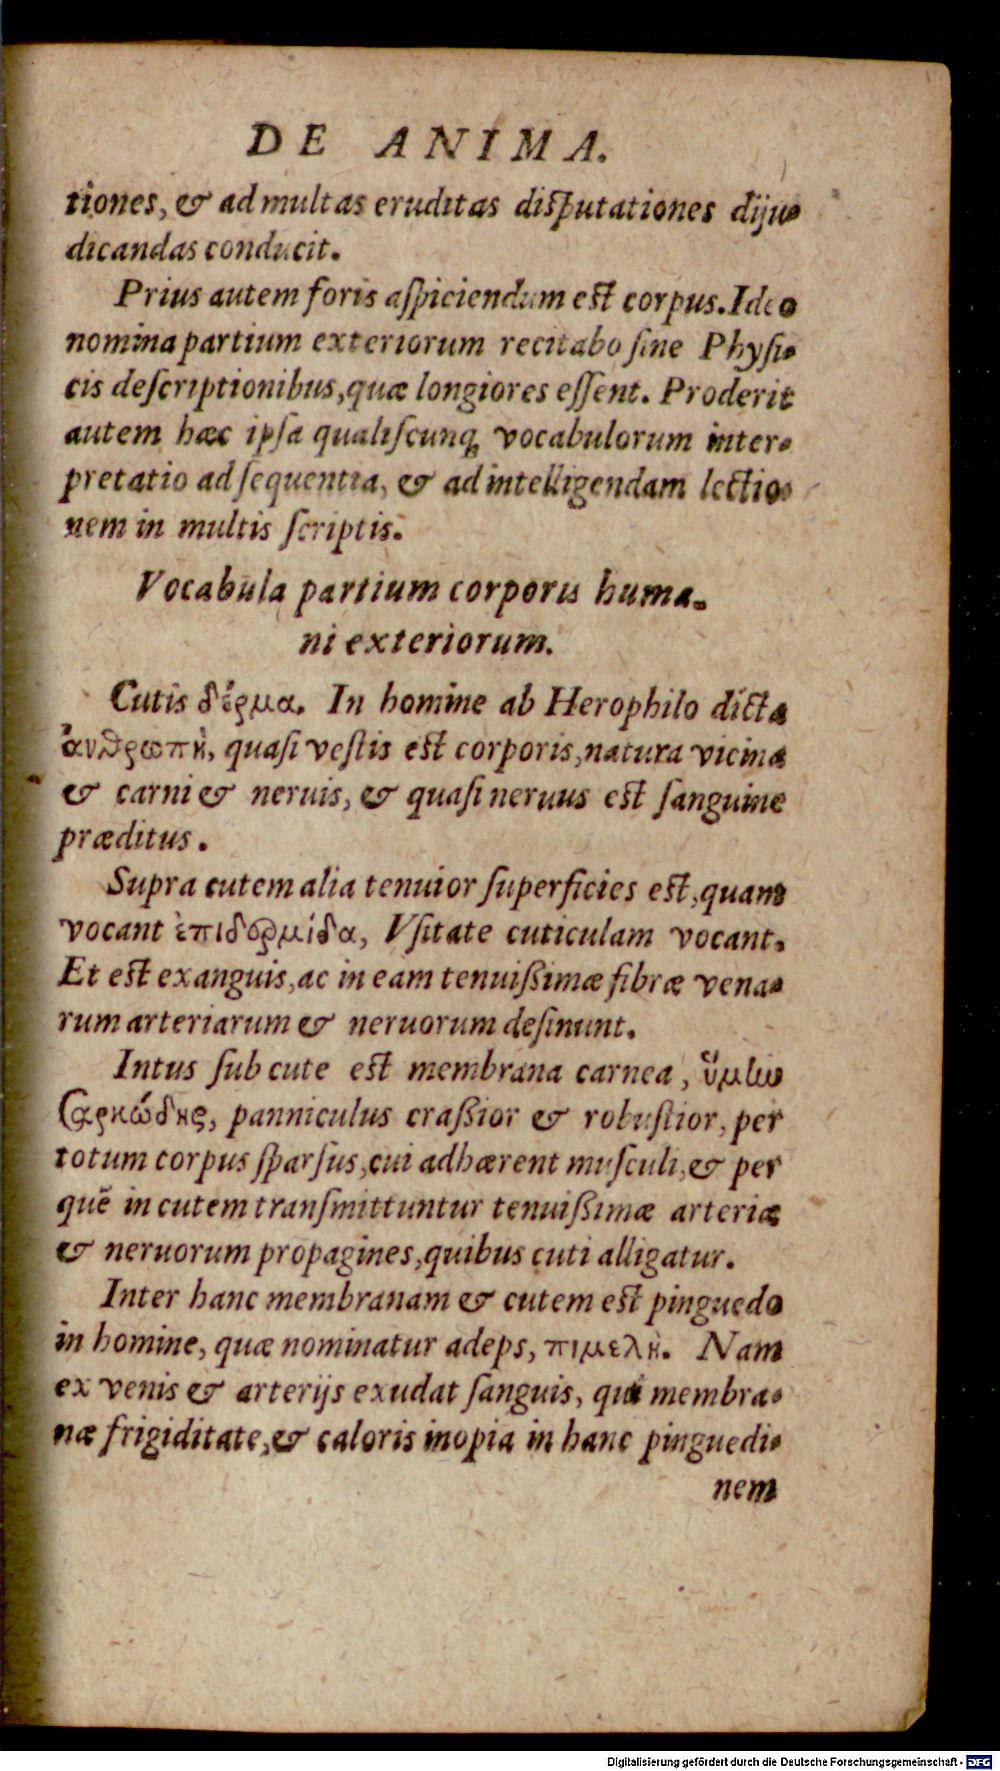 DE ANIMA.
tiones, & ad multas eruditas disputationes diju-
dicandas conducit.
Prius autem foris aſpiciendum est corpus. Ideo
nomina partium exteriorum recitabo ſine Phyſi-
cis deſcriptionibus, quæ longiores eſſent. Proderit
autem hæc ipſa qualiſcunq; vocabulorum inter-
pretatio ad ſequentia, & ad intelligendam lectio-
nem in multis ſcriptis.
Vocabula partium corporis huma-
ni exteriorum.
Cutis δέρμα. In homine ab Herophilo dicta
ἀνθρωπὴ, quaſi veſtis est corporis, natura vicina
& carni & neruis, & quaſi neruus est ſanguine
præditus.
Supra cutem alia tenuior ſuperficies est, quam
vocant ἐπιδερμίδα, Vſitate cuticulam vocant.
Et est exanguis, ac in eam tenuißimæ fibræ vena-
rum arteriarum & neruorum deſinunt.
Intus ſub cute est membrana carnea, ὕμην
σαρκώδης, panniculus craßior & robuſtior, per
totum corpus ſparſus, cui adhærent muſculi, & per
quē in cutem tranſmittuntur tenuißimæ arteriæ
& neruorum propagines, quibus cuti alligatur.
Inter hanc membranam & cutem est pinguedo
in homine, quæ nominatur adeps, πιμελὴ. Nam
ex venis & arterijs exudat ſanguis, qui membra-
næ frigiditate, & caloris inopia in hanc pinguedi-
nem
Digitalisierung gefördert durch die Deutsche Forschungsgemeinschaft - DFG